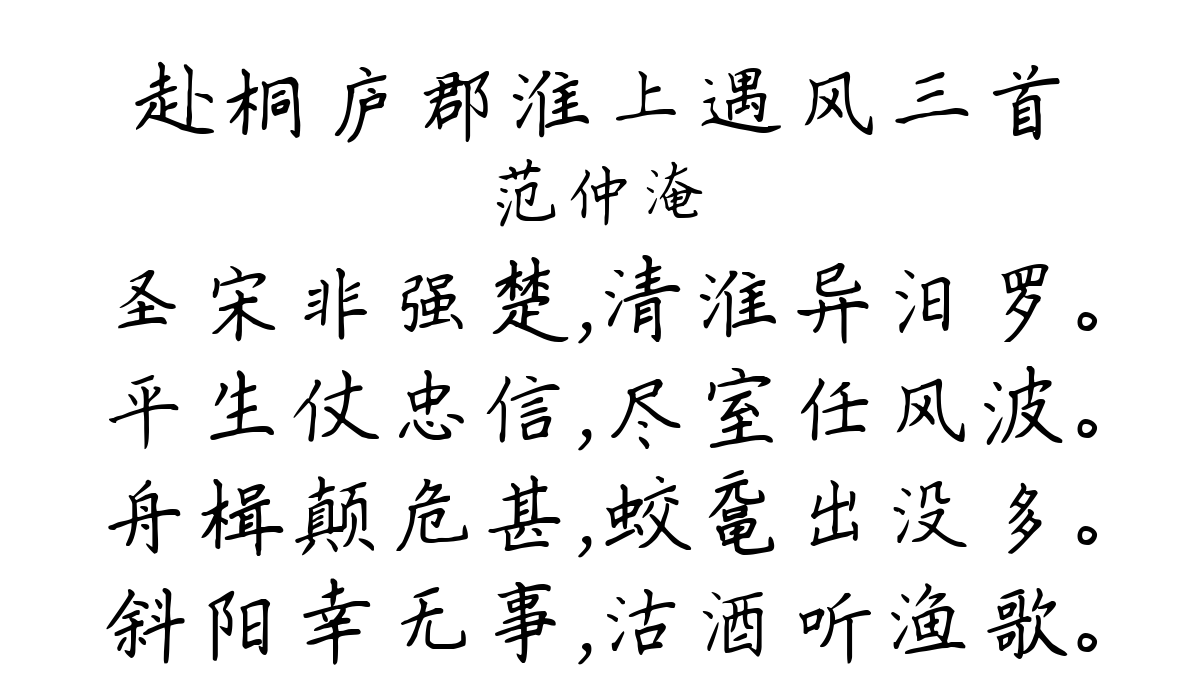 赴桐庐郡淮上遇风三首
范仲淹
圣宋非强楚,清淮异汨罗。
平生仗忠信,尽室任风波。
舟楫颠危甚,蛟鼋出没多。
斜阳幸无事,沽酒听渔歌。